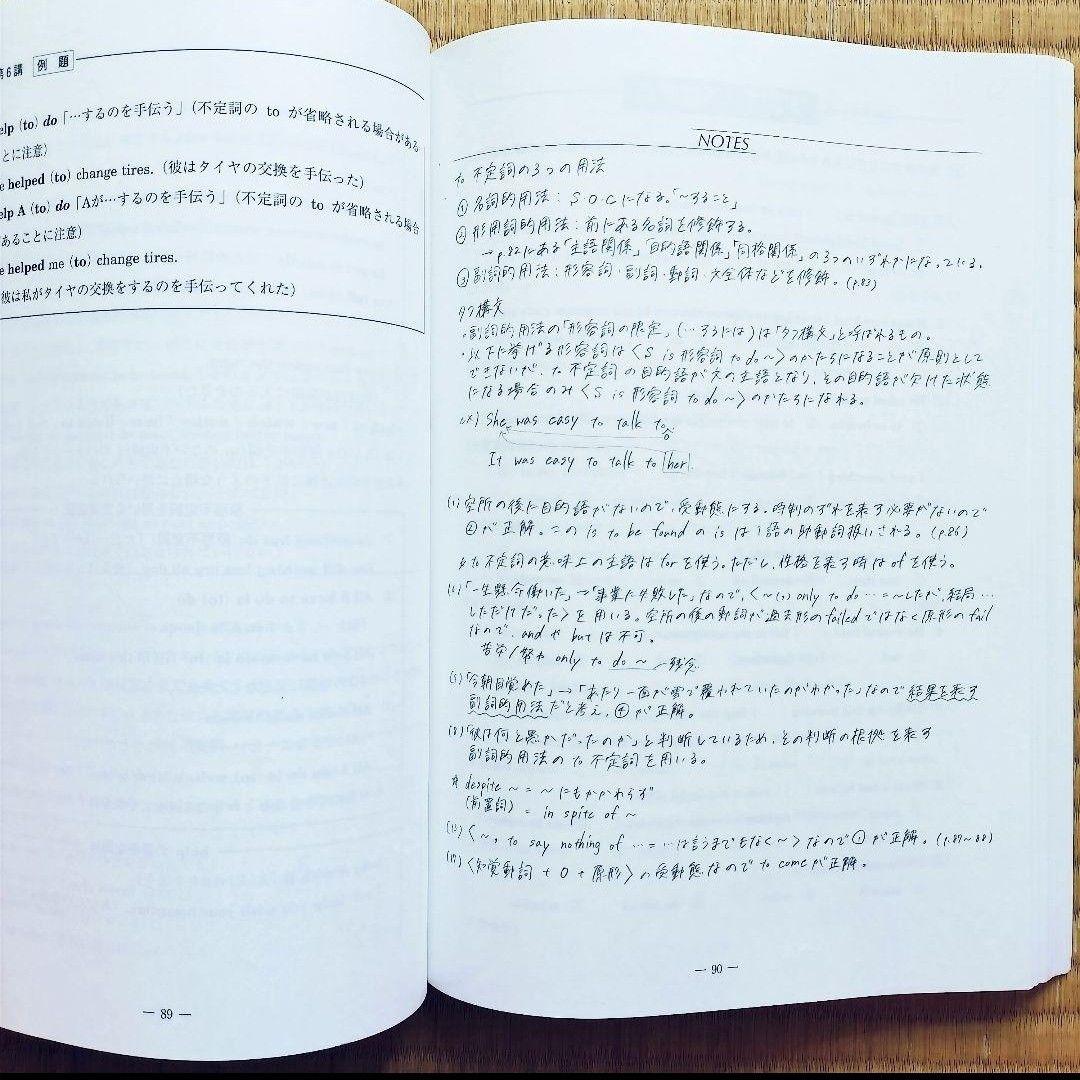 第6講 例題
elp (to) do「…するのを手伝う」(不定詞の to が省略される場合がある
ことに注意)
e helped (to) change tires.(彼はタイヤの交換を手伝った)
elp A (to) do「Aが…するのを手伝う」(不定詞の to が省略される場合
があることに注意)
e helped me (to) change tires.
彼は私がタイヤの交換をするのを手伝ってくれた)
— 89 —
NOTES
to 不定詞の3つの用法
① 名詞的用法：S O Cになる。「～すること」
② 形用詞的用法：前にある名詞を修飾する。
→p.82にある「主語関係」「目的語関係」「同格関係」の3つのいずれかになっている。
③ 副詞的用法：形容詞・副詞・動詞・文全体などを修飾。(p.83)
タフ構文
・副詞的用法の「形容詞の限定」(…するには)は「タフ構文」と呼ばれるもの。
・以下に挙げる形容詞は〈S is 形容詞 to do ～〉のかたちになることが原則として
できないが、to 不定詞の目的語が文の主語となり、その目的語が欠けた状態
になる場合のみ〈S is 形容詞 to do ～〉のかたちになれる。
ex) She was easy to talk to.
It was easy to talk to her.
(1) 空所の後に目的語がないので、受動態にする。時制のずれを表す必要がないので
②が正解。この is to be found の is は1語の助動詞扱いされる。(p.86)
to 不定詞の意味上の主語は for を使う。ただし、性格を表す時は of を使う。
「一生懸命働いた」→「事業に失敗した」なので、〈～(,) only to do … = ～したが、結局…
しただけだった〉を用いる。空所の後の動詞が過去形の failed ではなく原形の fail
なので、and や but は不可。
苦労/努力 only to do ～ 残念
(5)「今朝目覚めた」→「あたり一面が雪で覆われていたのがわかった」なので結果を表す
副詞的用法だと考え、④が正解。
(8)「彼は何と愚かだったのか」と判断しているため、その判断の根拠を表す
副詞的用法の to 不定詞を用いる。
despite ～ = ～にもかかわらず
(前置詞) = in spite of ～
(13)〈～, to say nothing of … = …は言うまでもなく～〉なので①が正解。(p.87～88)
〈知覚動詞 + O + 原形〉の受動態なので to come が正解。
— 90 —